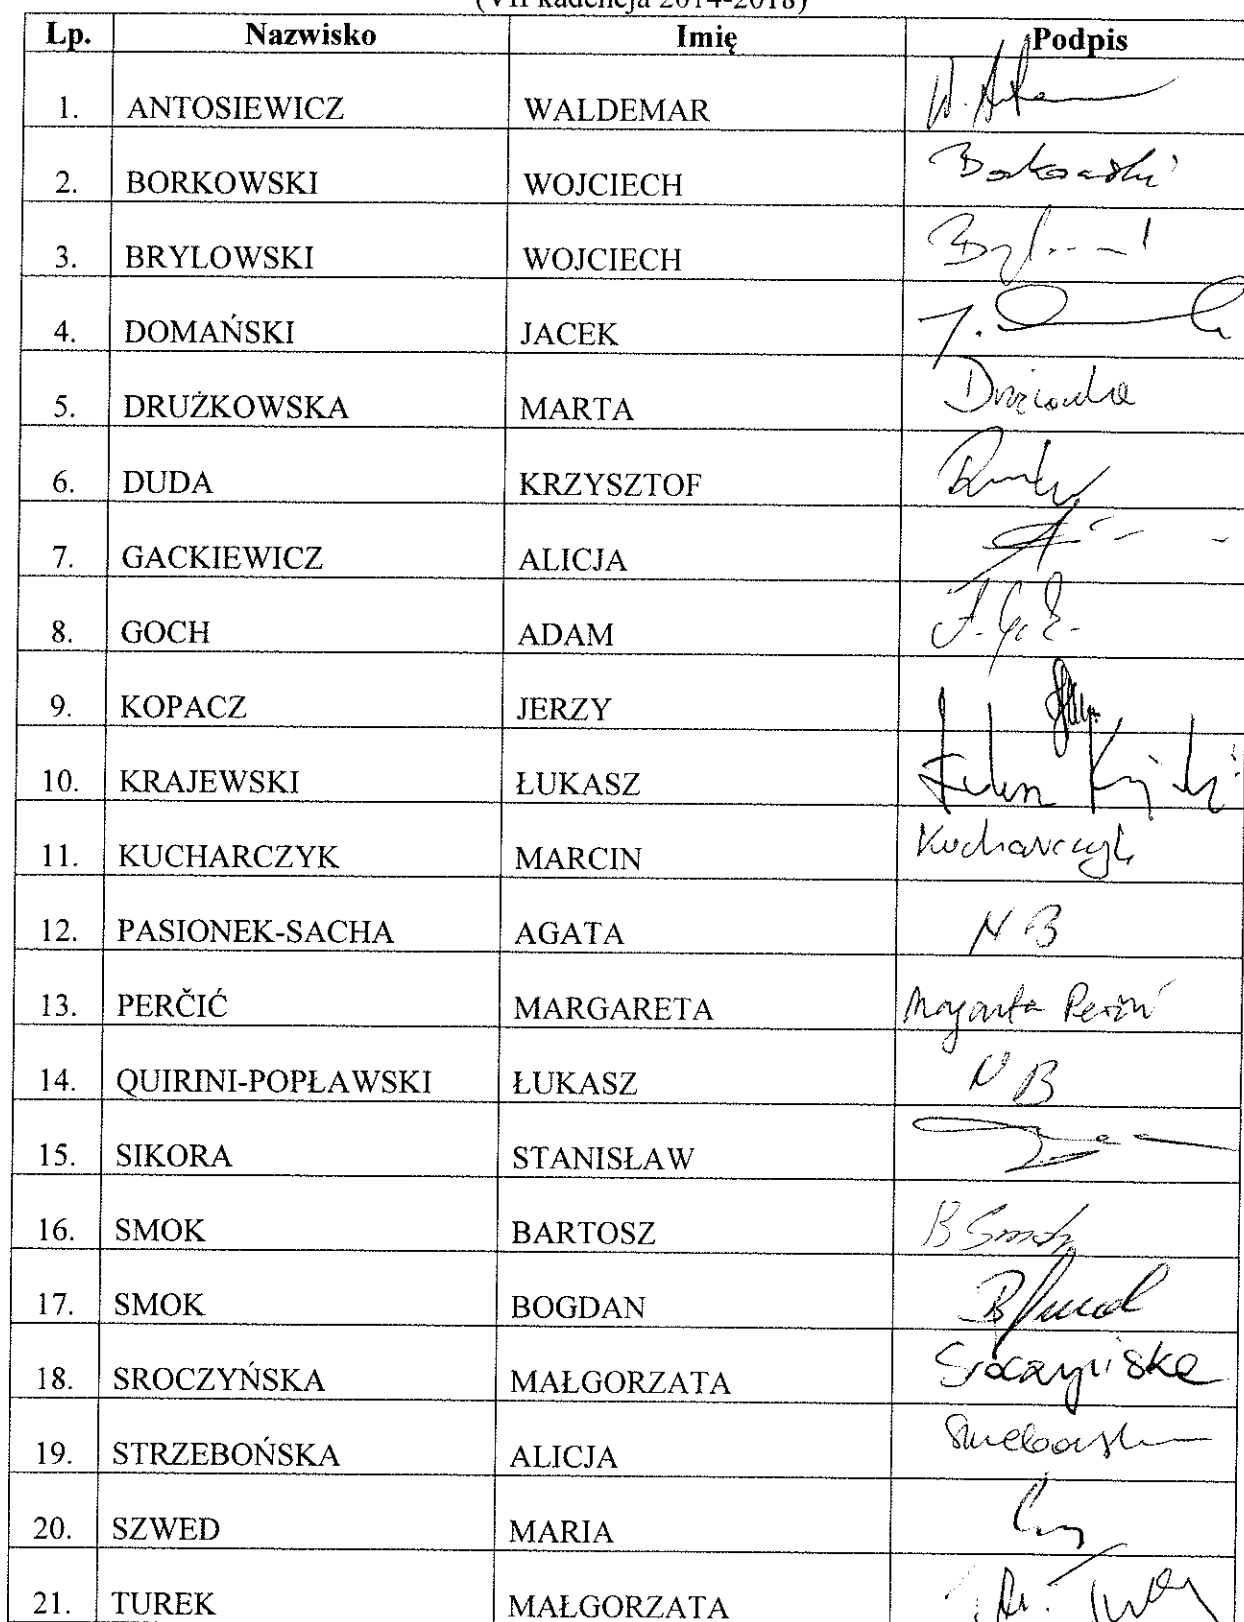 (VII kadencja 2014-2018)
Lp. Nazwisko Imię Podpis
1. ANTOSIEWICZ WALDEMAR
2. BORKOWSKI WOJCIECH Borkowski
3. BRYLOWSKI WOJCIECH
4. DOMAŃSKI JACEK
5. DRUŻKOWSKA MARTA
6. DUDA KRZYSZTOF
7. GACKIEWICZ ALICJA
8. GOCH ADAM
9. KOPACZ JERZY
10. KRAJEWSKI ŁUKASZ
11. KUCHARCZYK MARCIN Kucharczyk
12. PASIONEK-SACHA AGATA NB
13. PERČIĆ MARGARETA Margareta Perčić
14. QUIRINI-POPŁAWSKI ŁUKASZ NB
15. SIKORA STANISŁAW
16. SMOK BARTOSZ B Smok
17. SMOK BOGDAN
18. SROCZYŃSKA MAŁGORZATA Sroczyńska
19. STRZEBOŃSKA ALICJA
20. SZWED MARIA
21. TUREK MAŁGORZATA